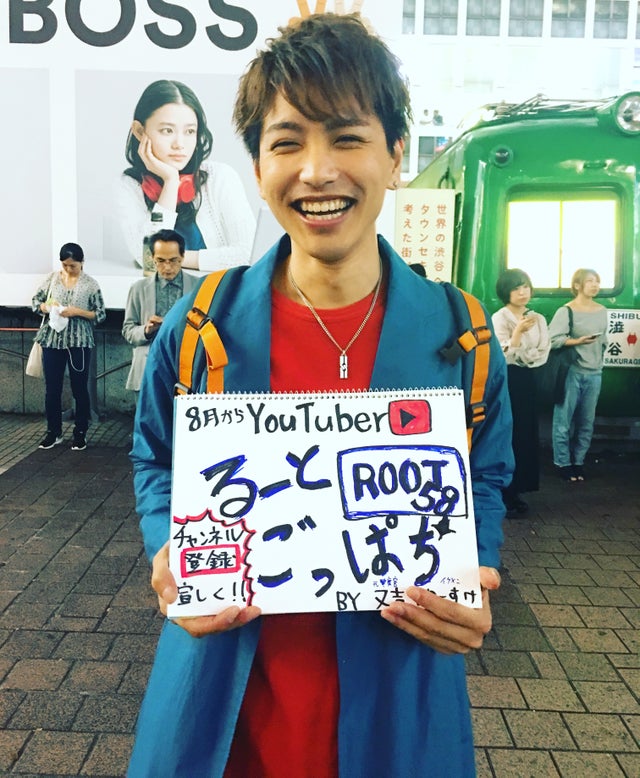 BOSS
世界の渋谷
タウンセ
考えた街
SHIBU
澁
谷
SAKURAGI
8月からYouTuber
るーと
ROOT
58
ごっぱち
チャンネル
登録
宜しく!!
イケメン
BY 又吉
ーすけ